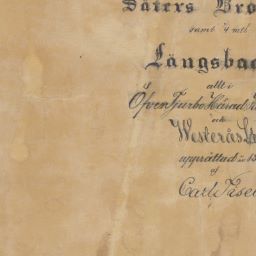 Säters Bro
samt 1/4 mtl
Längsba
allt i
Öfven Tjurbo Härad
och
Westerås L
upprättad år 18
af
Carl